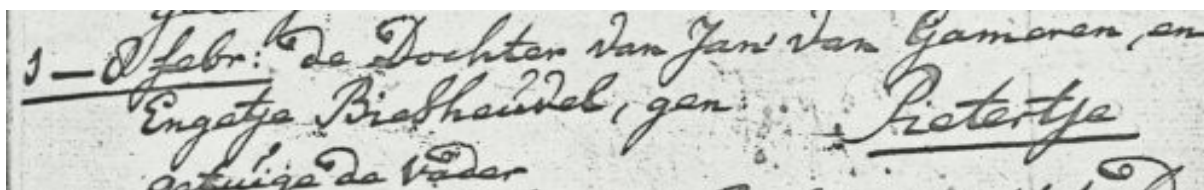 1 - 8 febr: de Dochter van Jan van Gameren, en
Engetje Biesheuvel, gen Pietertje
getuige de vader